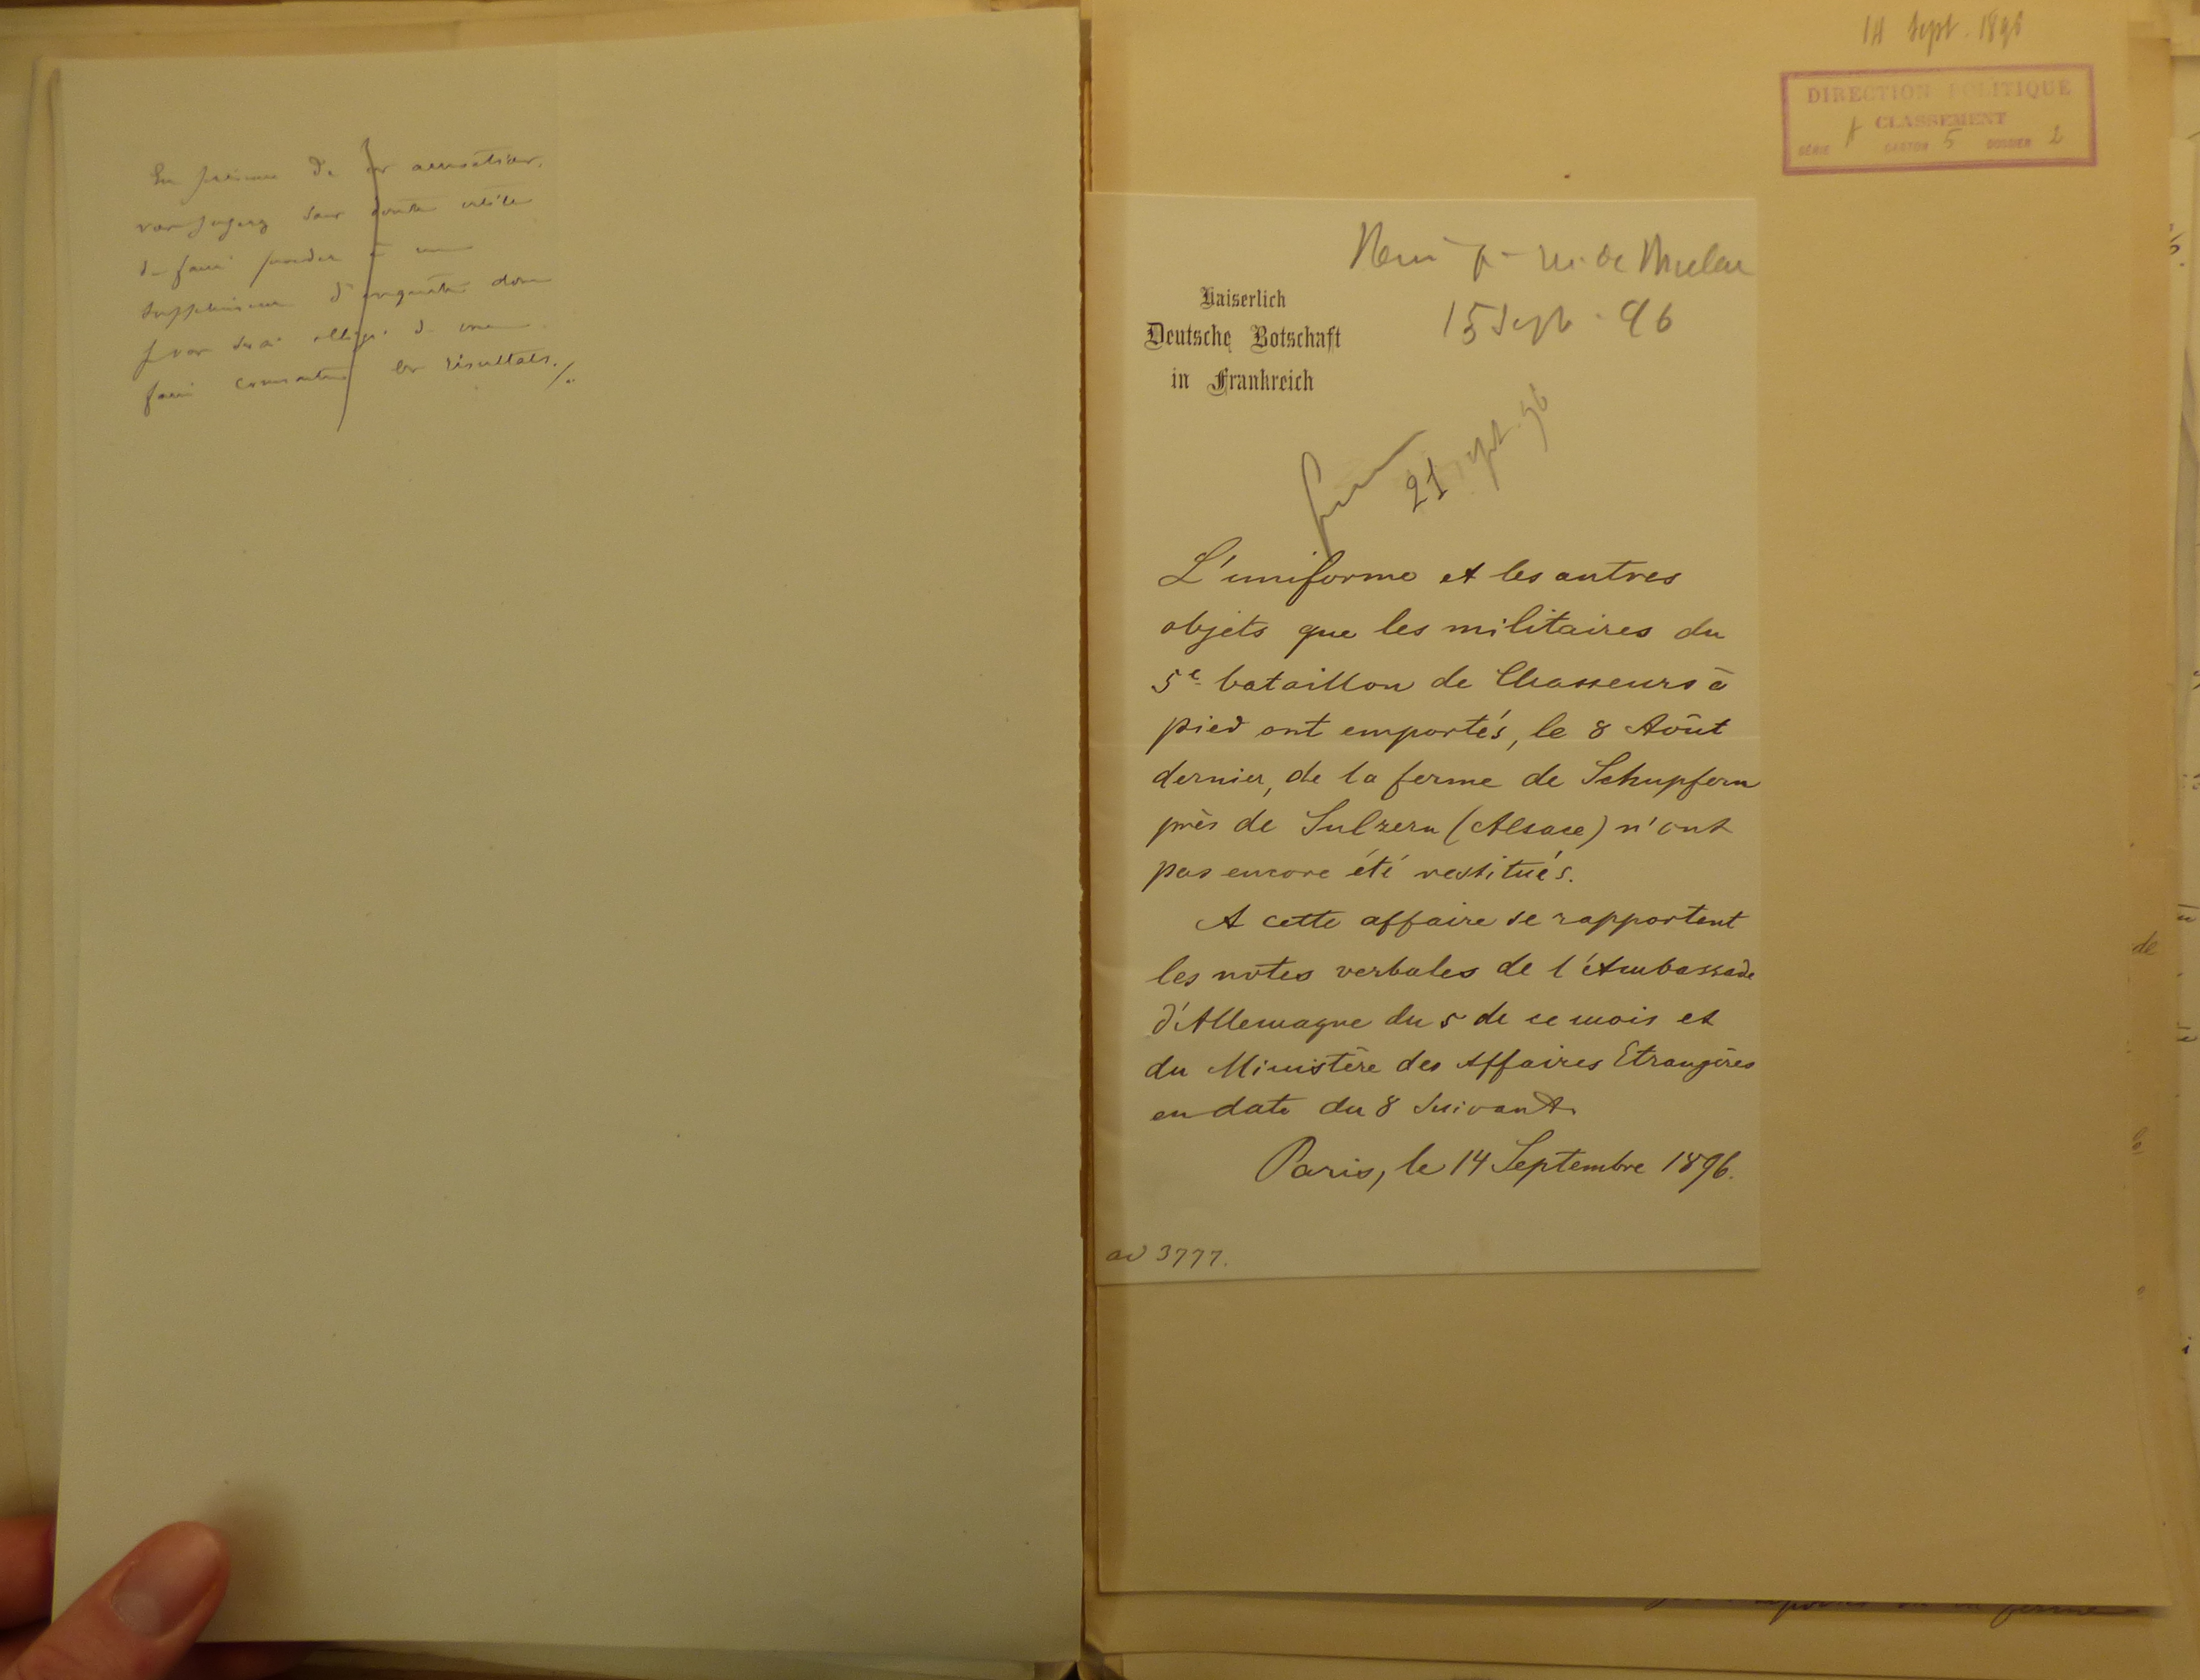 En présence de ces accusations,
vous jugerez sans doute utile
de faire procéder à un
supplément d'enquête dont
je vous serai obligé de me
faire connaître les résultats./.
14 Sept. 1896
DIRECTION POLITIQUE
CLASSEMENT
SÉRIE A CARTON 5 DOSSIER 2
Remis par M. de
15 Sept. 96
Kaiserlich
Deutsche Botschaft
in Frankreich
21 Sept. 96
L'uniforme et les autres
objets que les militaires du
5e bataillon de Chasseurs à
pied ont emportés, le 8 Août
dernier, de la ferme de Schupfern
près de Sulzern (Alsace) n'ont
pas encore été restitués.
A cette affaire se rapportent
les notes verbales de l'Ambassade
d'Allemagne du 5 de ce mois et
du Ministère des Affaires Etrangères
en date du 8 suivant.
Paris, le 14 Septembre 1896.
ad 3777.